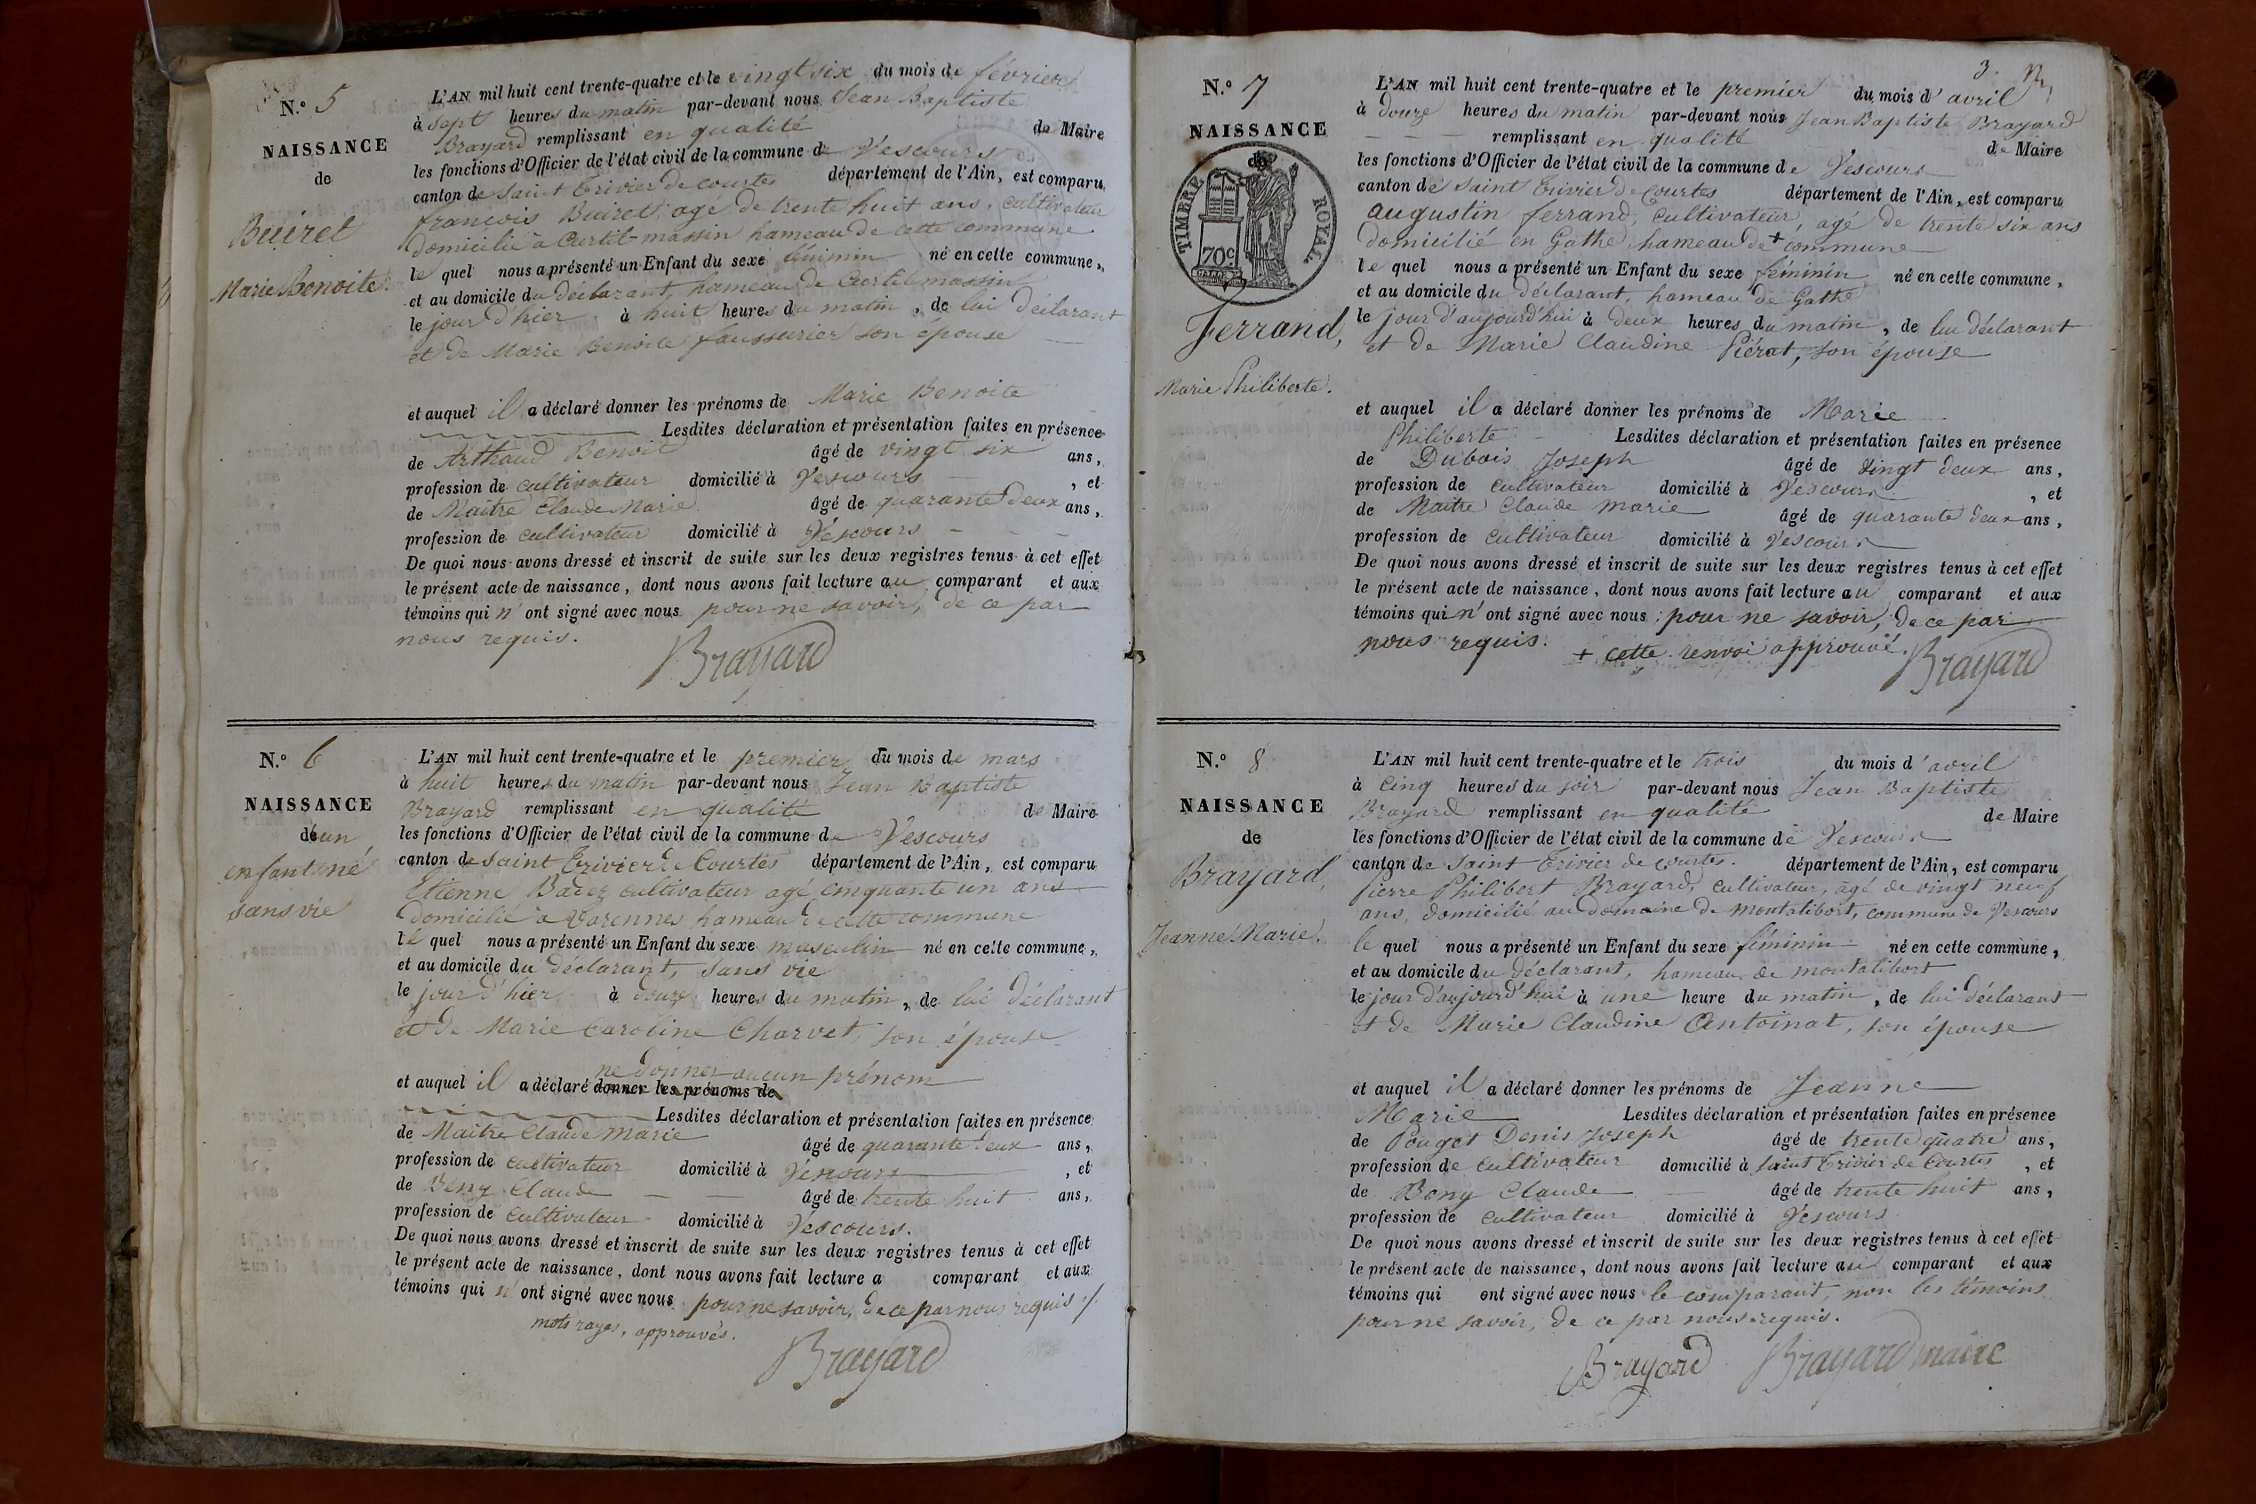 N.° 5
NAISSANCE
de
Buiret
Marie Benoite
L'AN mil huit cent trente-quatre et le vingt six du mois de février
à sept heures du matin par-devant nous Jean Baptiste
Brayard remplissant en qualité de Maire
les fonctions d'Officier de l'état civil de la commune de Vescours
canton de Saint Trivier de Courtes département de l'Ain, est comparu
françois Buiret, agé de trente huit ans, cultivateur
domicilié à Curtil-massin hameau de cette commune
le quel nous a présenté un Enfant du sexe féminin né en cette commune,
et au domicile du déclarant, hameau de Curtil massin
le jour d'hier à huit heures du matin, de lui déclarant
et de Marie Benoite faussurier son épouse
et auquel il a déclaré donner les prénoms de Marie Benoite
Lesdites déclaration et présentation faites en présence
de Arthaud Benoit âgé de vingt six ans,
profession de cultivateur domicilié à Vescours, et
de Maitre Claude Marie âgé de quarante deux ans,
profession de cultivateur domicilié à Vescours
De quoi nous avons dressé et inscrit de suite sur les deux registres tenus à cet effet
le présent acte de naissance, dont nous avons fait lecture au comparant et aux
témoins qui n'ont signé avec nous pour ne savoir, de ce par
nous requis.
Brayard
N.° 6
NAISSANCE
de un
enfant né
sans vie
L'AN mil huit cent trente-quatre et le premier du mois de mars
à huit heures du matin par-devant nous Jean Baptiste
Brayard remplissant en qualité de Maire
les fonctions d'Officier de l'état civil de la commune de Vescours
canton de Saint Trivier de Courtes département de l'Ain, est comparu
Etienne cultivateur agé cinquante un ans
domicilié à Varennes hameau de cette commune
le quel nous a présenté un Enfant du sexe masculin né en cette commune,
et au domicile du déclarant, sans vie
le jour d'hier à douze heures du matin, de lui déclarant
et de Marie Caroline Charvet, son épouse
ne donner aucun prénom
et auquel il a déclaré donner les prénoms de
Lesdites déclaration et présentation faites en présence
de Maitre Claude Marie âgé de quarante deux ans,
profession de cultivateur domicilié à Vescours, et
de Bony Claude âgé de trente huit ans,
profession de cultivateur domicilié à Vescours.
De quoi nous avons dressé et inscrit de suite sur les deux registres tenus à cet effet
le présent acte de naissance, dont nous avons fait lecture a comparant et aux
témoins qui n'ont signé avec nous pour ne savoir, de ce par nous requis ./.
mots rayés, approuvés.
Brayard
3.
N.° 7
NAISSANCE
de
TIMBRE ROYAL.
70c
Ferrand,
Marie Philiberte.
L'AN mil huit cent trente-quatre et le premier du mois d'avril
à douze heures du matin par-devant nous Jean Baptiste Brayard
remplissant en qualité de Maire
les fonctions d'Officier de l'état civil de la commune de Vescours
canton de Saint Trivier de Courtes département de l'Ain, est comparu
augustin ferrand, cultivateur, agé de trente six ans
domicilié en Gathe, hameau de + commune
le quel nous a présenté un Enfant du sexe féminin né en cette commune,
et au domicile du déclarant, hameau de Gathe
le jour d'aujourd'hui à deux heures du matin, de lui déclarant
et de Marie Claudine Piérat, son épouse
et auquel il a déclaré donner les prénoms de Marie
Philiberte Lesdites déclaration et présentation faites en présence
de Dubois Joseph âgé de vingt deux ans,
profession de cultivateur domicilié à Vescours, et
de Maitre Claude marie âgé de quarante deux ans,
profession de cultivateur domicilié à Vescours
De quoi nous avons dressé et inscrit de suite sur les deux registres tenus à cet effet
le présent acte de naissance, dont nous avons fait lecture au comparant et aux
témoins qui n'ont signé avec nous pour ne savoir, de ce par
nous requis. + cette renvoi approuvé.
Brayard
N.° 8
NAISSANCE
de
Brayard,
Jeanne Marie.
L'AN mil huit cent trente-quatre et le trois du mois d'avril
à cinq heures du soir par-devant nous Jean Baptiste
Brayard remplissant en qualité de Maire
les fonctions d'Officier de l'état civil de la commune de Vescours
canton de Saint Trivier de Courtes. département de l'Ain, est comparu
Pierre Philibert Brayard, cultivateur, agé de vingt neuf
ans, domicilié au domaine de montalibort, commune de Vescours
le quel nous a présenté un Enfant du sexe féminin né en cette commune,
et au domicile du déclarant, hameau de montalibort
le jour d'aujourd'hui à une heure du matin, de lui déclarant
et de Marie Claudine Antoinat, son épouse
et auquel il a déclaré donner les prénoms de Jeanne
Marie Lesdites déclaration et présentation faites en présence
de Pouget Denis Joseph âgé de trente quatre ans,
profession de cultivateur domicilié à Saint Trivier de Courtes, et
de Bony Claude âgé de trente huit ans,
profession de cultivateur domicilié à Vescours
De quoi nous avons dressé et inscrit de suite sur les deux registres tenus à cet effet
le présent acte de naissance, dont nous avons fait lecture au comparant et aux
témoins qui ont signé avec nous le comparant, non les témoins
pour ne savoir, de ce par nous requis.
Brayard Brayard maire